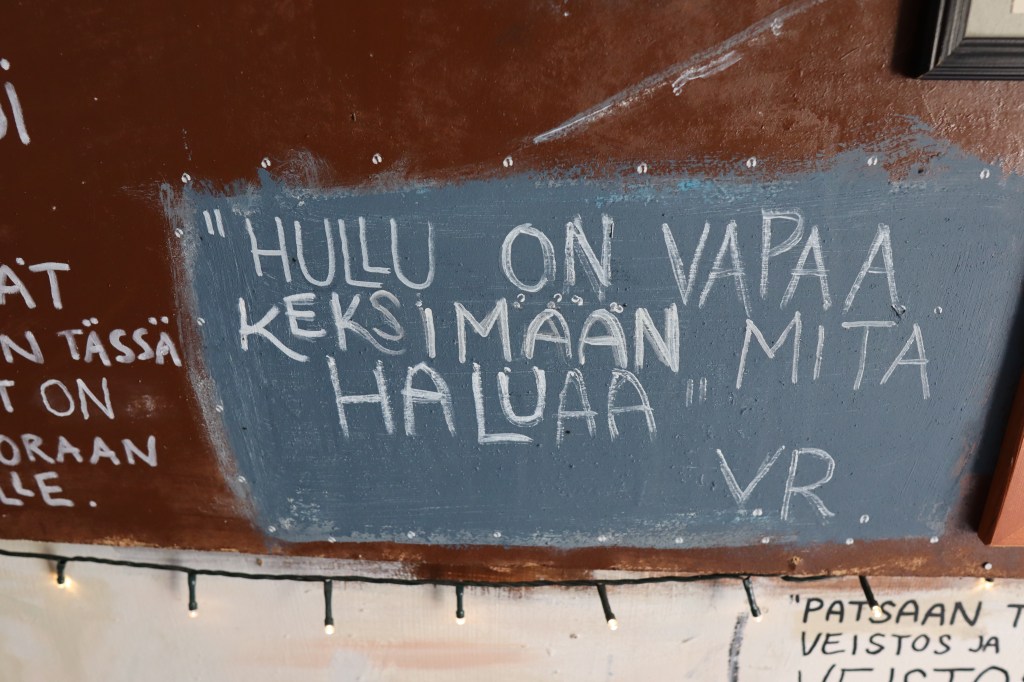 "HULLU ON VAPAA
KEKSIMÄÄN MITA
HALUAA"
VR
ÄT
N TÄSSÄ
T ON
ORAAN
LLE.
"PATSAAN T
VEISTOS JA
VEISTOS